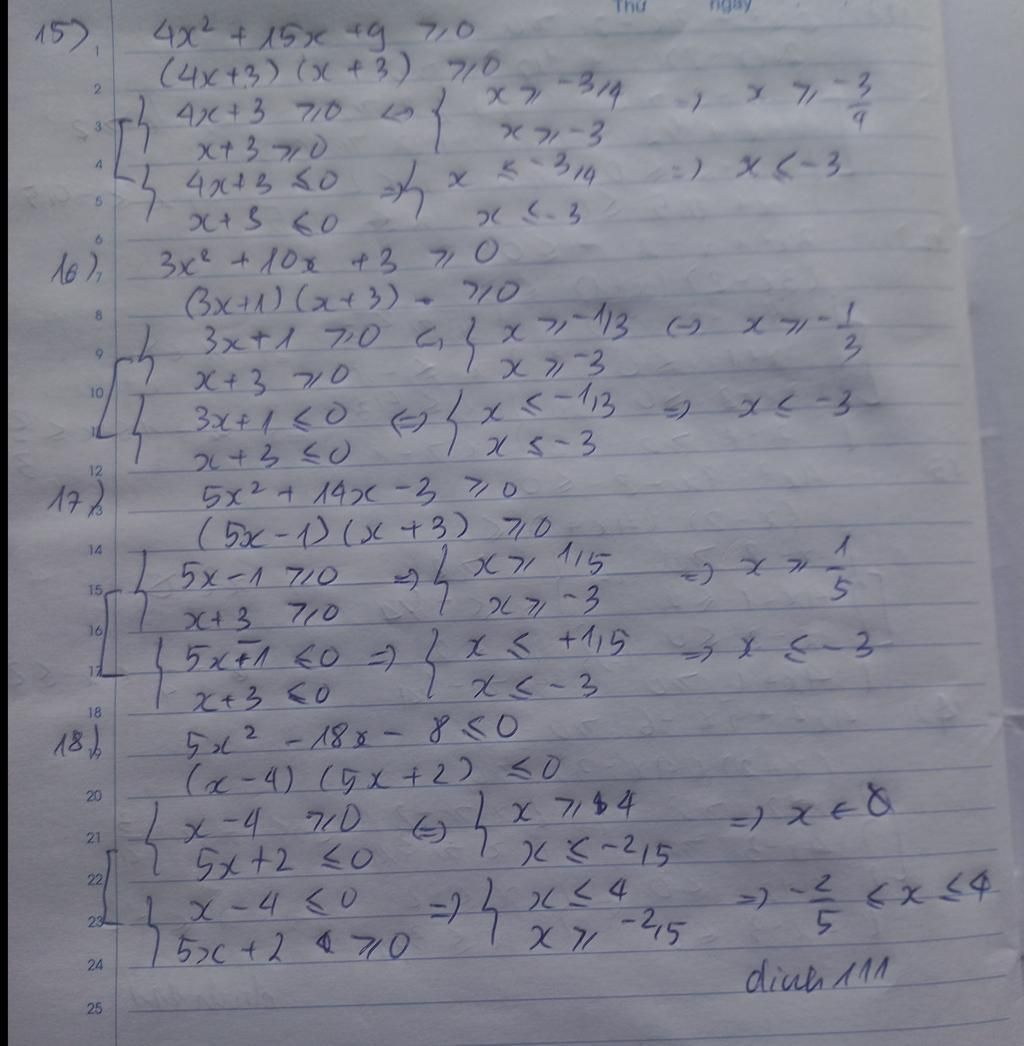 Thứ ngày
15) 4x² + 15x + 9 ≥ 0
(4x+3) (x+3) ≥ 0
{ 4x+3 ≥ 0 <-> { x ≥ -3/4 => x ≥ -3/4
x+3 ≥ 0 x ≥ -3
{ 4x+3 ≤ 0 => { x ≤ -3/4 => x ≤ -3
x+3 ≤ 0 x ≤ -3
16) 3x² + 10x + 3 ≥ 0
(3x+1) (x+3) ≥ 0
{ 3x+1 ≥ 0 <-> { x ≥ -1/3 <-> x ≥ -1/3
x+3 ≥ 0 x ≥ -3
{ 3x+1 ≤ 0 <=> { x ≤ -1/3 => x ≤ -3
x+3 ≤ 0 x ≤ -3
17) 5x² + 14x - 3 ≥ 0
(5x-1) (x+3) ≥ 0
{ 5x-1 ≥ 0 => { x ≥ 1/5 => x ≥ 1/5
x+3 ≥ 0 x ≥ -3
{ 5x-1 ≤ 0 => { x ≤ +1/5 => x ≤ -3
x+3 ≤ 0 x ≤ -3
18) 5x² - 18x - 8 ≤ 0
(x-4) (5x+2) ≤ 0
{ x-4 ≥ 0 <=> { x ≥ 4 => x ∈ ∅
5x+2 ≤ 0 x ≤ -2/5
{ x-4 ≤ 0 => { x ≤ 4 => -2/5 ≤ x ≤ 4
5x+2 ≥ 0 x ≥ -2/5
dinh111